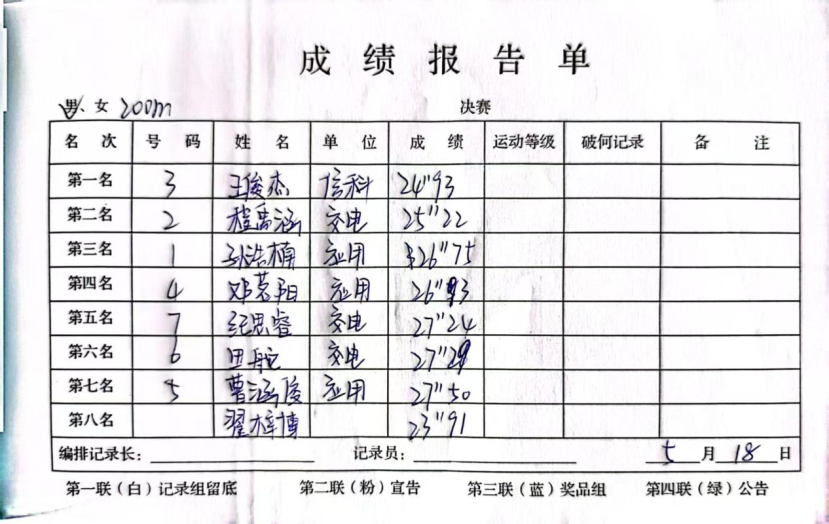 成绩报告单
男、女 200m 决赛
名次 号码 姓名 单位 成绩 运动等级 破何记录 备注
第一名 3 王俊杰 信科 24"93
第二名 2 程禹涵 交电 25"22
第三名 1 孙浩楠 应用 26"75
第四名 4 邓茗阳 应用 26"93
第五名 7 纪思睿 交电 27"24
第六名 6 田航 交电 27"29
第七名 5 曹涵俊 应用 27"50
第八名 翟梓博 23"91
编排记录长: 记录员: 5月18日
第一联(白)记录组留底 第二联(粉)宣告 第三联(蓝)奖品组 第四联(绿)公告